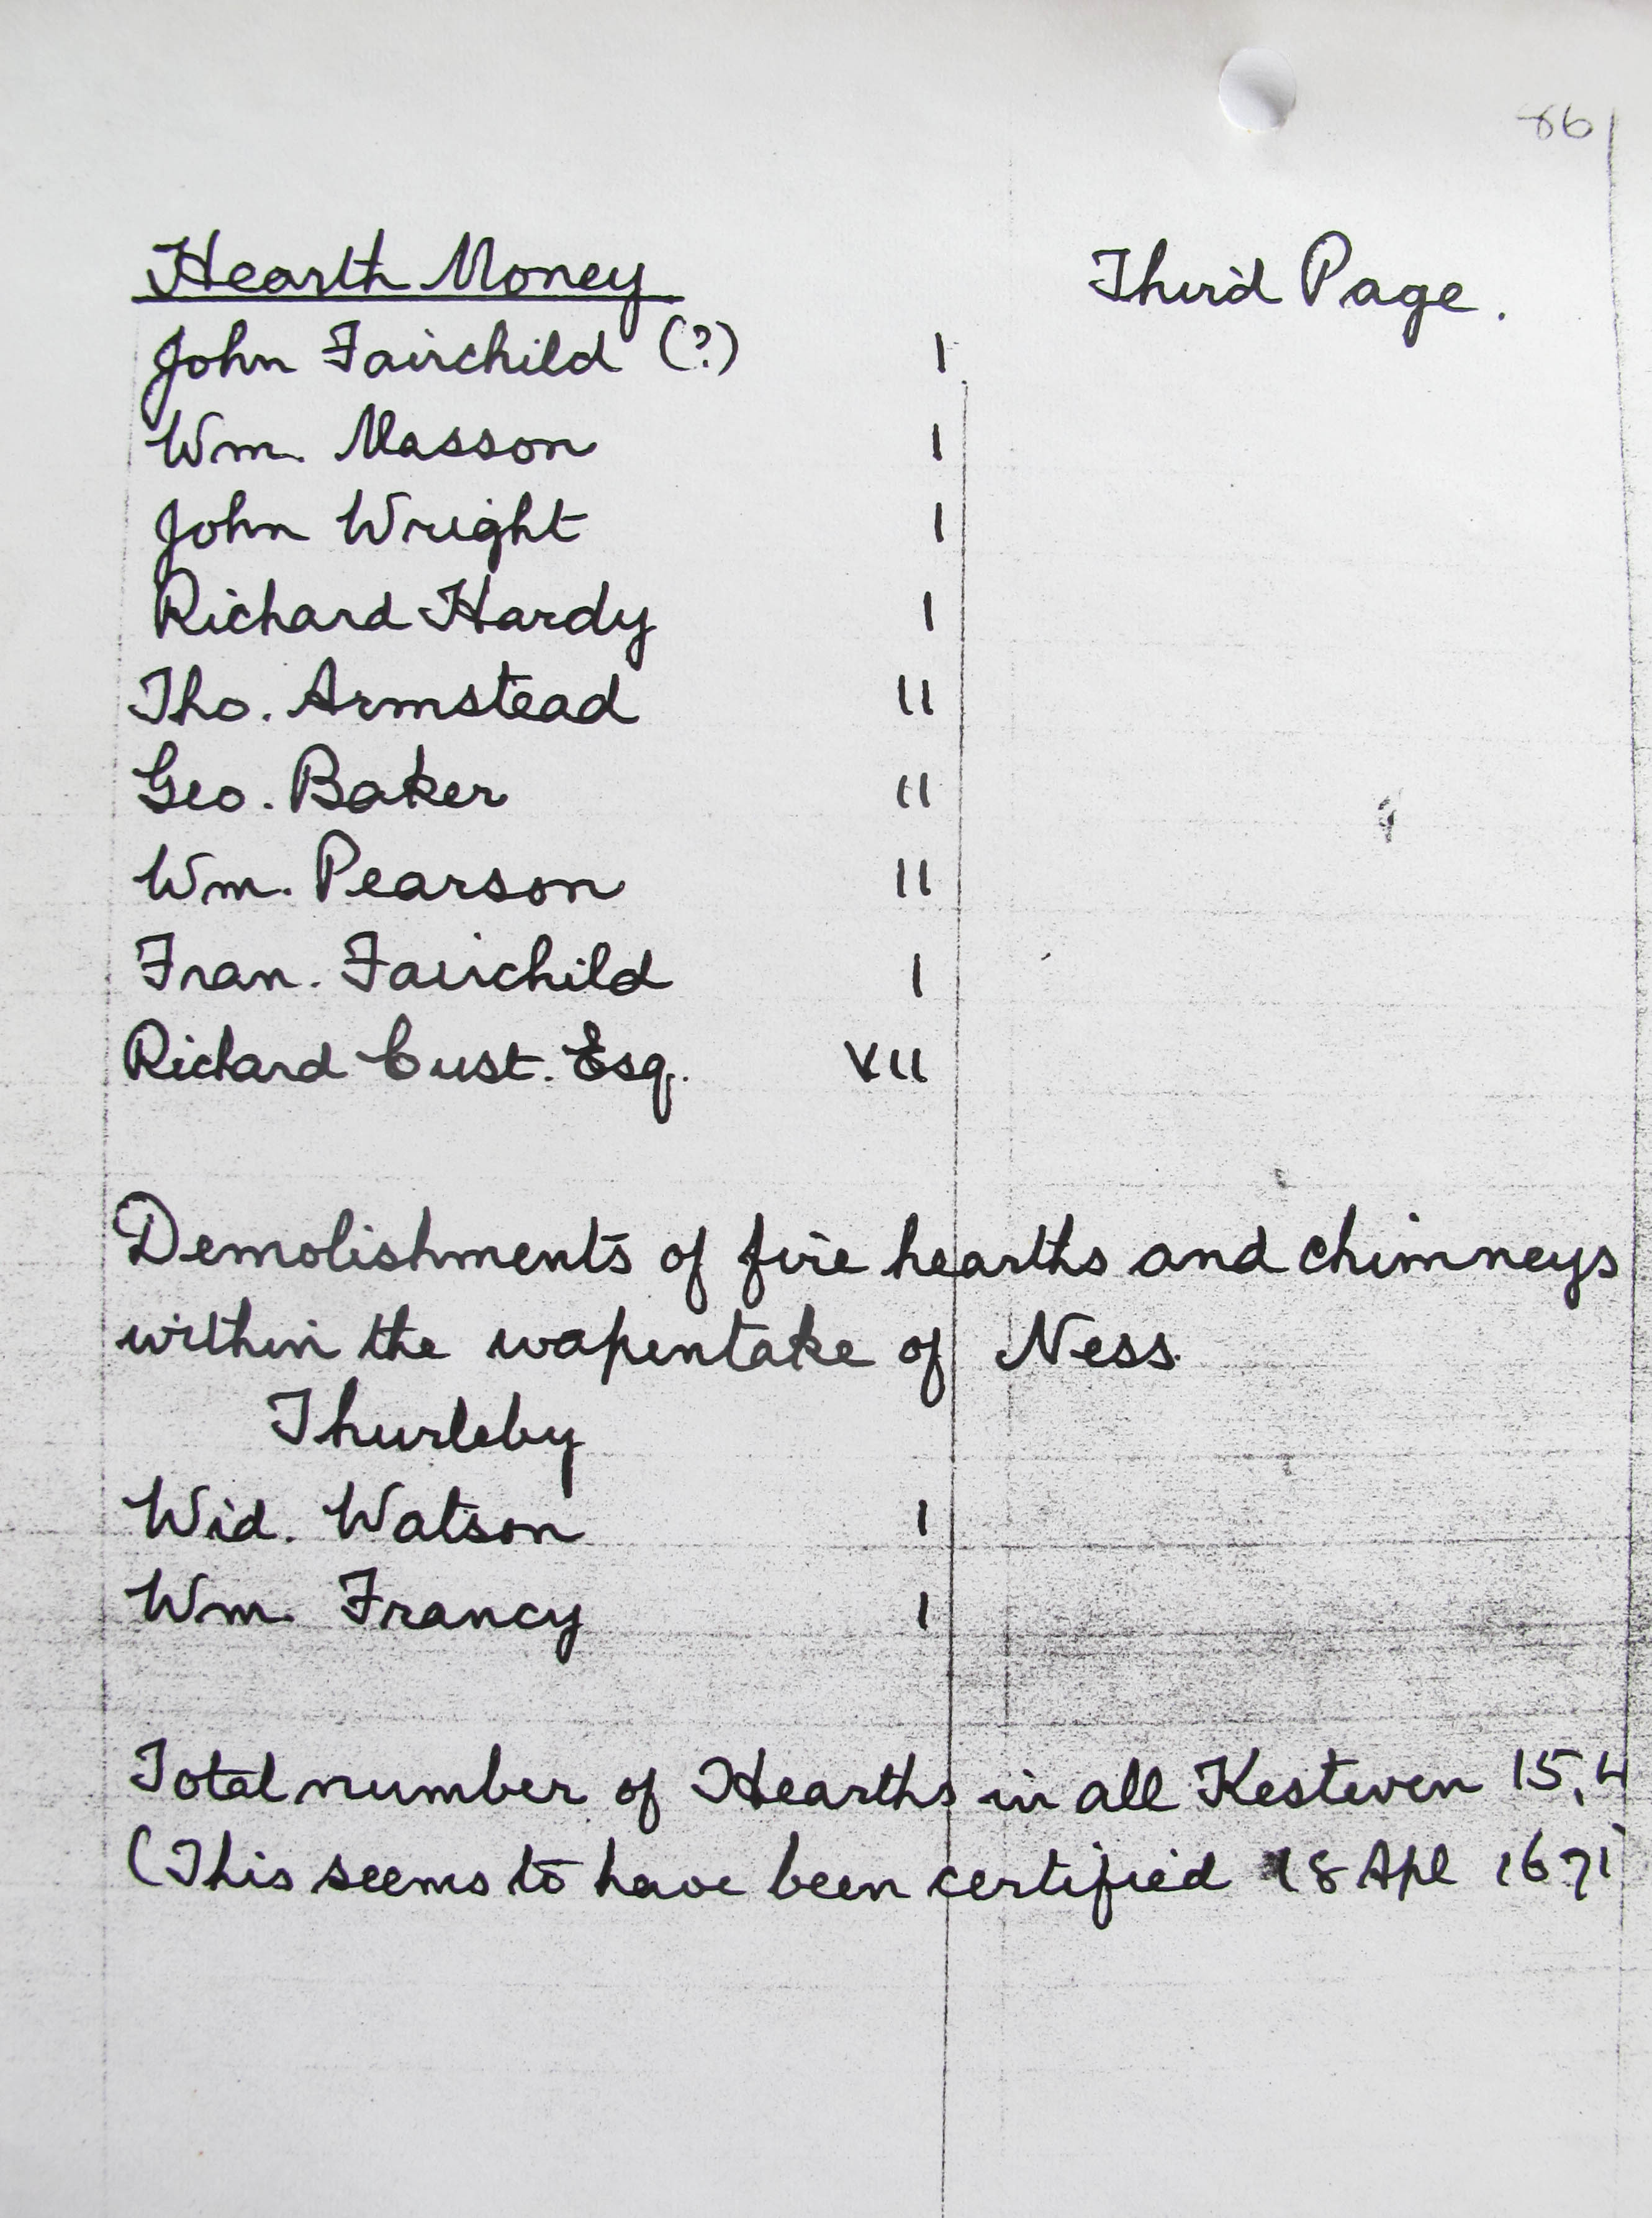 86
Hearth Money Third Page.
John Fairchild (?) I
Wm. Masson I
John Wright I
Richard Hardy I
Tho. Armstead II
Geo. Baker II
Wm. Pearson II
Fran. Fairchild I
Richard Cust. Esq. VII
Demolishments of fire hearths and chimneys
within the wapentake of Ness.
Thurleby
Wid. Watson I
Wm. Francy I
Total number of Hearths in all Kesteven 15,4
(This seems to have been certified 18 Apl 1671